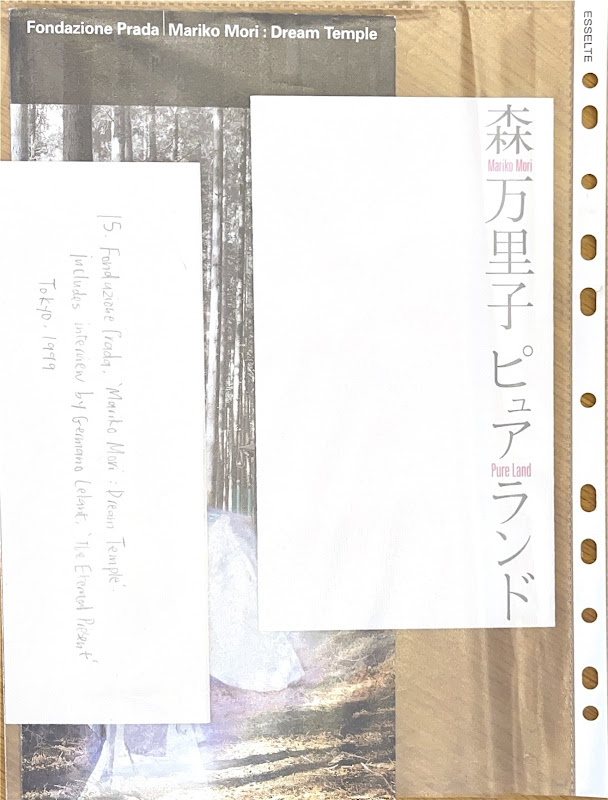 Fondazione Prada | Mariko Mori : Dream Temple
ESSELTE
森万里子 ピュアランド
Mariko Mori
Pure Land
15. Fondazione Prada, 'Mariko Mori : Dream Temple'
includes interview by Germano Celant, 'The Eternal Present'
Tokyo. 1999